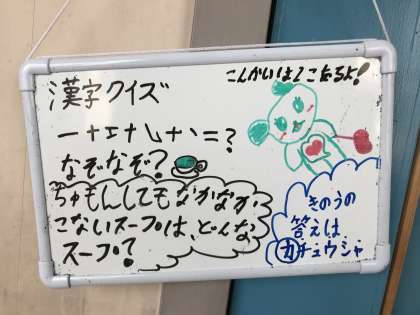 漢字クイズ
こんかいは2こあるよ!
一+エ+乚+丶=?
なぞなぞ?
ちゅもんしてもなかなか
こないスープは、どんな
スープ?
きのうの
答えは
カチュウシャ